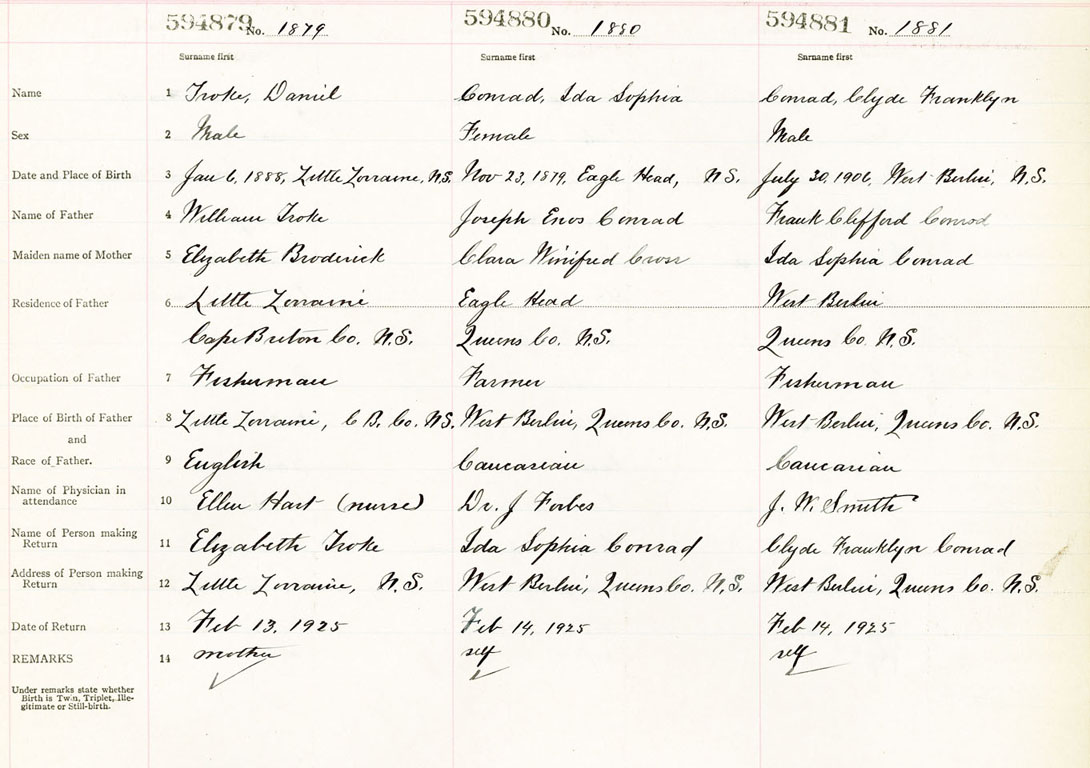 594879 No. 1879 594880 No. 1880 594881 No. 1881
Surname first Surname first Surname first
Name 1 Troke, Daniel Conrad, Ida Sophia Conrad, Clyde Franklyn
Sex 2 Male Female Male
Date and Place of Birth 3 Jan 6, 1888, Little Lorraine, N.S. Nov 23, 1879, Eagle Head, N.S. July 30, 1906, West Berlin, N.S.
Name of Father 4 William Troke Joseph Enos Conrad Frank Clifford Conrod
Maiden name of Mother 5 Elyzabeth Broderick Clara Winifred Cross Ida Sophia Conrad
Residence of Father 6 Little Lorraine Eagle Head West Berlin
Cape Breton Co. N.S. Queens Co. N.S. Queens Co. N.S.
Occupation of Father 7 Fisherman Farmer Fisherman
Place of Birth of Father 8 Little Lorraine, C B. Co. N.S. West Berlin, Queens Co. N.S. West Berlin, Queens Co. N.S.
and
Race of Father. 9 English Caucasian Caucasian
Name of Physician in
attendance 10 Ellen Hart (nurse) Dr. J Forbes J. W. Smith
Name of Person making
Return 11 Elizabeth Troke Ida Sophia Conrad Clyde Franklyn Conrad
Address of Person making
Return 12 Little Lorraine, N.S. West Berlin, Queens Co. N.S. West Berlin, Queens Co. N.S.
Date of Return 13 Feb 13, 1925 Feb 14, 1925 Feb 14, 1925
REMARKS 14 mother self self
Under remarks state whether
Birth is Twin, Triplet, Ille-
gitimate or Still-birth.